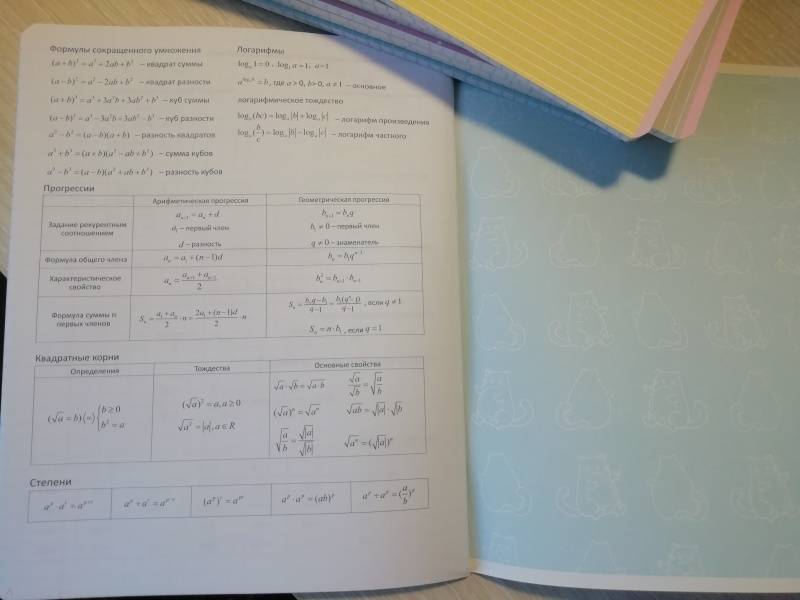 Формулы сокращенного умножения
(a+b)² = a² + 2ab + b² – квадрат суммы
(a−b)² = a² − 2ab + b² – квадрат разности
(a+b)³ = a³ + 3a²b + 3ab² + b³ – куб суммы
(a−b)³ = a³ − 3a²b + 3ab² − b³ – куб разности
a² − b² = (a−b)(a+b) – разность квадратов
a³ + b³ = (a+b)(a² − ab + b²) – сумма кубов
a³ − b³ = (a−b)(a² + ab + b²) – разность кубов
Логарифмы
logₐ 1 = 0, logₐ a = 1, a=1
a^(logₐ b) = b, где a > 0, b > 0, a ≠ 1 – основное
логарифмическое тождество
logₐ(bc) = logₐ|b| + logₐ|c| – логарифм произведения
logₐ(b/c) = logₐ|b| − logₐ|c| – логарифм частного
Прогрессии
Арифметическая прогрессия
Геометрическая прогрессия
Задание рекурентным
соотношением
aₙ₊₁ = aₙ + d
a₁ – первый член
d – разность
bₙ₊₁ = bₙq
b₁ ≠ 0 – первый член
q ≠ 0 – знаменатель
Формула общего члена
aₙ = a₁ + (n−1)d
bₙ = b₁qⁿ⁻¹
Характеристическое
свойство
bₙ² = bₙ₋₁ · bₙ₊₁
Формула суммы n
первых членов
Sₙ = (a₁+aₙ)/2 · n = (2a₁+(n−1)d)/2 · n
Sₙ = (bₙq−b₁)/(q−1) = b₁(qⁿ−1)/(q−1), если q ≠ 1
Sₙ = n · b₁, если q = 1
Квадратные корни
Определения
Тождества
Основные свойства
(√a = b)⟨=⟩{b ≥ 0
b² = a
(√a)² = a, a ≥ 0
√a² = |a|, a ∈ R
√a · √b = √a·b
√a/√b = √(a/b)
(√a)ⁿ = √aⁿ
√ab = √|a| · √|b|
√(a/b) = √|a|/√|b|
√aⁿ = (√|a|)ⁿ
Степени
(aᵖ)ʳ = aᵖʳ
aᵖ · aᵖ = (ab)ᵖ
aᵖ ÷ aᵖ = (a/b)ᵖ